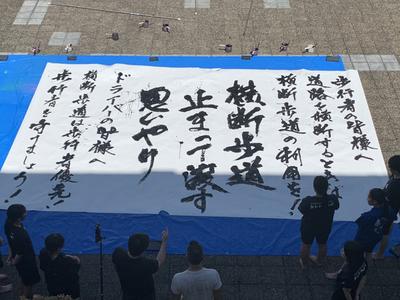 歩行者の皆様へ
道路を横断するときは
横断歩道の利用を!!
横断歩道
止まって渡す
思いやり
ドライバーの皆様へ
横断歩道は歩行者優先!
歩行者を守りましょう!